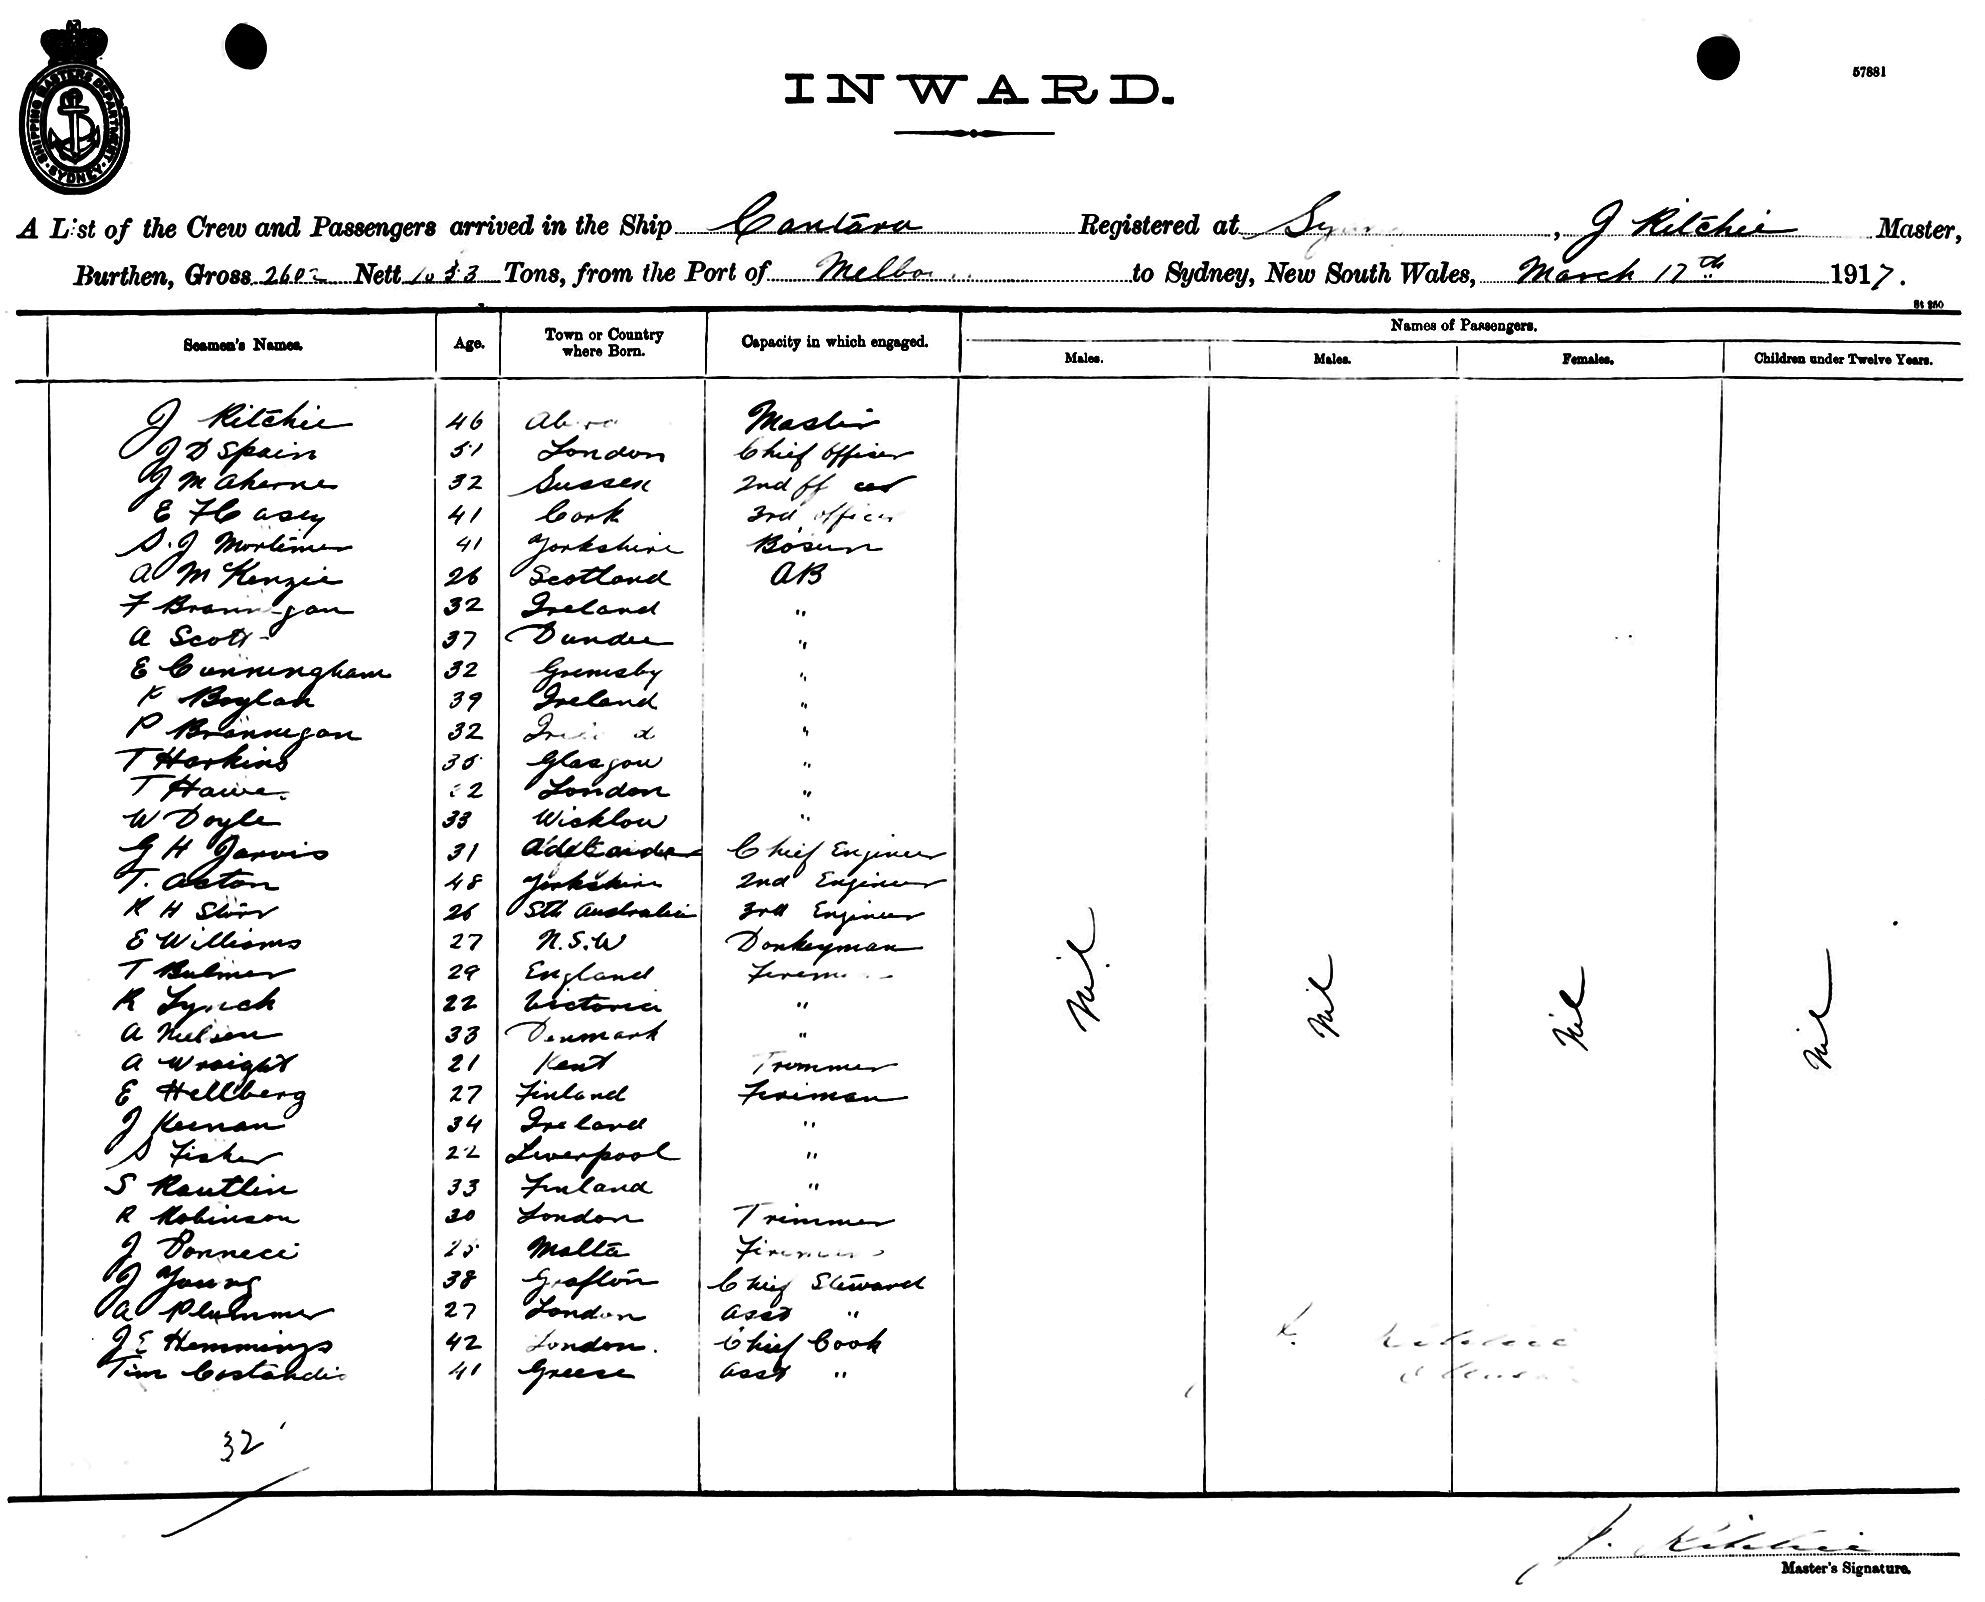 SHIPPING MASTERS DEPARTMENT
SYDNEY
57881
INWARD.
A List of the Crew and Passengers arrived in the Ship Cantara Registered at , J Ritchie Master,
Burthen, Gross Nett Tons, from the Port of to Sydney, New South Wales, March 17th 1917.
St 250
Seamen's Names. Age. Town or Country where Born. Capacity in which engaged. Names of Passengers.
Males. Males. Females. Children under Twelve Years.
J Ritchie 46 Master
J D Spain 51 London Chief Officer
J M Aherne 32 Sussex 2nd
E F Casey 41 Cork 3rd officer
S. J Mortimer 41 Yorkshire Bosun
A McKenzie 26 Scotland AB
F Brannigan 32 Ireland "
A Scott 37 Dundee "
E Cunningham 32 Gremsby "
Boylan 39 Ireland "
P Brannegan 32 "
T Harkins 35 Glasgow "
T London "
W Doyle 33 Wicklow "
G H Jarvis 31 Chief Engineer
T. Acton 48 Yorkshire 2nd Engineer
R H Storr 26 Sth Australia 3rd Engineer
E Williams 27 N.S.W Donkeyman
T Bulmer 29 England
R Lynch 22 Victoria "
A Nielsen 33 Denmark "
A Wraight 21 Kent Trimmer
E Hellberg 27 Finland Fireman
J Keenan 34 Ireland "
S Fisher 22 Liverpool "
S Rautlin 33 Finland "
R Robinson 30 London Trimmer
J 25 Malta
J Young 38 Grafton Chief Steward
A Plummer 27 London Asst "
J E Hemmings 42 London. Chief Cook
Tim 41 Greese Asst "
Nil. Nil Nil Nil
32
J. Ritchie
Master's Signature.